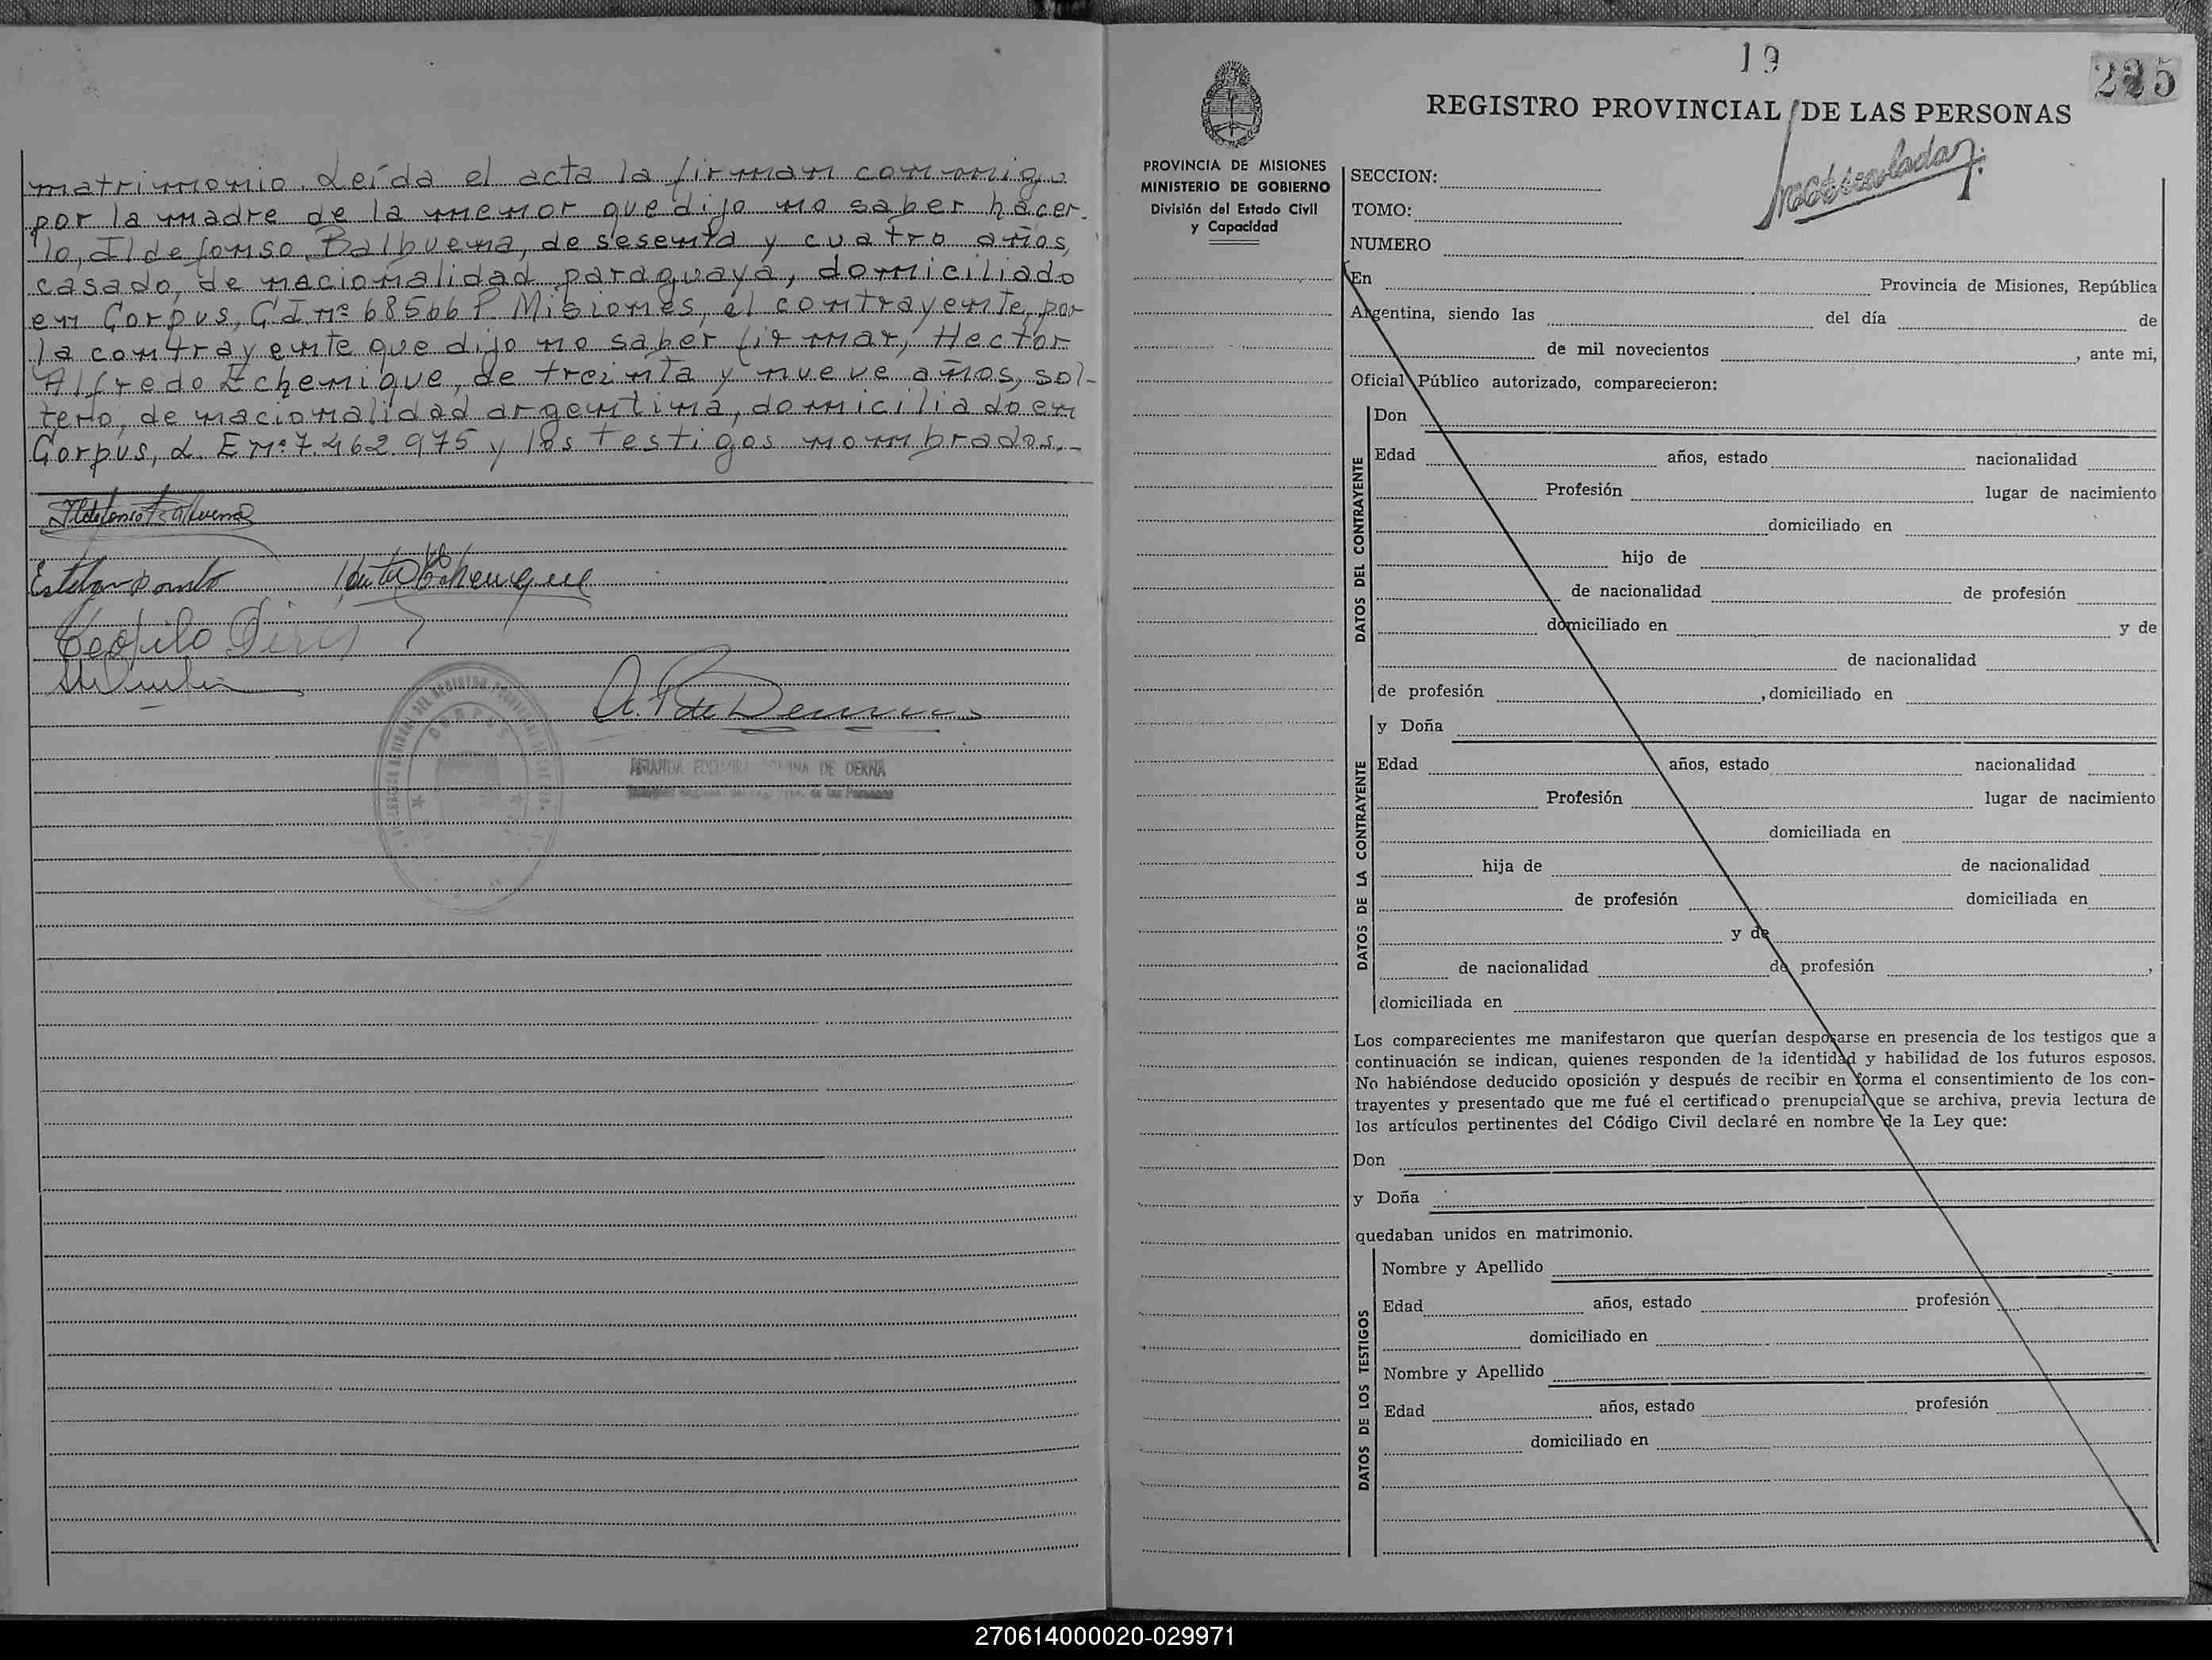 matrimonio. Leída el acta la firman conmigo
por la madre de la menor que dijo no saber hacer.
lo, Ildefonso Balbuena, de sesenta y cuatro años,
casado, de nacionalidad paraguaya, domiciliado
en Corpus, C.I. nº 68566 P. Misiones, el contrayente, por
la contrayente que dijo no saber firmar, Hector
Alfredo Echenique, de treinta y nueve años, sol-
tero, de nacionalidad argentina, domiciliado en
Corpus, L. E nº 7.462.975 y los testigos nombrados.-
Ildefonso Balbuena
Echenique
Teofilo
A. P de Denna
CORPUS
AMANDA DE DERNA
19
225
REGISTRO PROVINCIAL DE LAS PERSONAS
PROVINCIA DE MISIONES
MINISTERIO DE GOBIERNO
División del Estado Civil
y Capacidad
SECCION:
TOMO:
NUMERO
En Provincia de Misiones, República
Argentina, siendo las del día de
de mil novecientos , ante mi,
Oficial Público autorizado, comparecieron:
DATOS DEL CONTRAYENTE
Don
Edad años, estado nacionalidad
Profesión lugar de nacimiento
domiciliado en
hijo de
de nacionalidad de profesión
domiciliado en y de
de nacionalidad
de profesión , domiciliado en
DATOS DE LA CONTRAYENTE
y Doña
Edad años, estado nacionalidad
Profesión lugar de nacimiento
domiciliada en
hija de de nacionalidad
de profesión domiciliada en
y de
de nacionalidad de profesión ,
domiciliada en
Los comparecientes me manifestaron que querían desposarse en presencia de los testigos que a
continuación se indican, quienes responden de la identidad y habilidad de los futuros esposos.
No habiéndose deducido oposición y después de recibir en forma el consentimiento de los con-
trayentes y presentado que me fué el certificado prenupcial que se archiva, previa lectura de
los artículos pertinentes del Código Civil declaré en nombre de la Ley que:
Don
y Doña
quedaban unidos en matrimonio.
DATOS DE LOS TESTIGOS
Nombre y Apellido
Edad años, estado profesión
domiciliado en
Nombre y Apellido
Edad años, estado profesión
domiciliado en
270614000020-029971